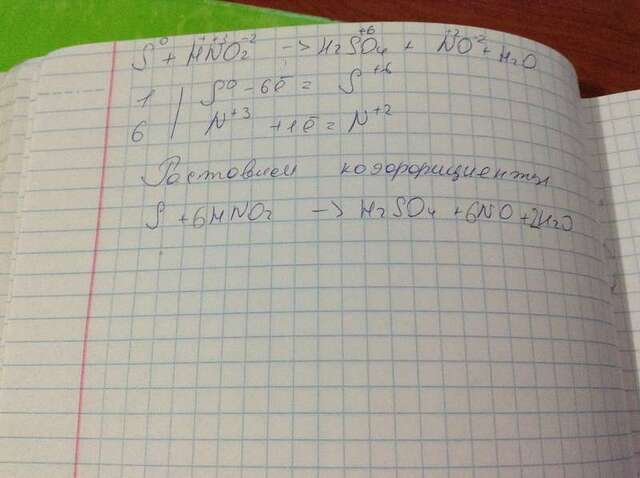 S⁰ + H⁺¹N⁺³O₂⁻² -> H₂S⁺⁶O₄ + N⁺²O⁻² + H₂O
1 | S⁰ - 6ē = S⁺⁶
6 | N⁺³ + 1ē = N⁺²
Расставием коэффициенты
S + 6HNO₂ -> H₂SO₄ + 6NO + 2H₂O